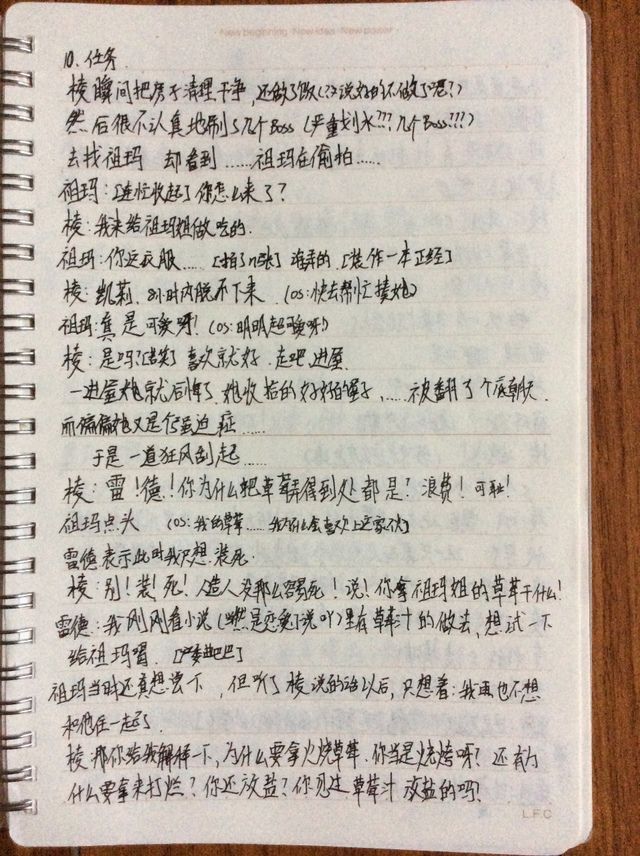 New beginning · New idea · New power
10. 任务.
棱瞬间把房子清理干净,还做了饭(??说好的不做了呢?)
然后很不认真地刷了几个Boss (严重划水???几个Boss???)
去找祖玛 却看到……祖玛在偷拍……
祖玛:[连忙收起] 你怎么来了?
棱:我来给祖玛姐做吃的.
祖玛:你这衣服……[拍了n张] 谁弄的 [装作一本正经]
棱:凯莉、小时内脱不下来 (OS:快去帮忙揍她)
祖玛:真是可爱呀!(OS:明明超可爱呀)
棱:是吗?[苦笑] 喜欢就好 走吧 进屋.
一进屋她就后悔了 她收拾的好好的屋子,……被翻了个底朝天.
而偏偏她又是个强迫症……
于是一道狂风刮起……
棱:雷!德!你为什么把草莓弄得到处都是?浪费!可耻!
祖玛点头 (OS:我的草莓……我为什么会喜欢上这家伙)
雷德表示此时我只想装死.
棱:别!装!死!人造人没那么容易死!说!你拿祖玛姐的草莓干什么!
雷德:我刚刚看小说(当然是恋爱小说吖)里有草莓汁的做法,想试一下
给祖玛喝.[严委屈巴巴]
祖玛当时还真想尝下,但听了棱说的话以后,只想着:我再也不想
和他在一起了.
棱:那你给我解释一下,为什么要拿火烧草莓.你当是烧烤呀?还有为
什么要拿来打烂?你还放盐?你见过草莓汁放盐的吗?
L.F.C